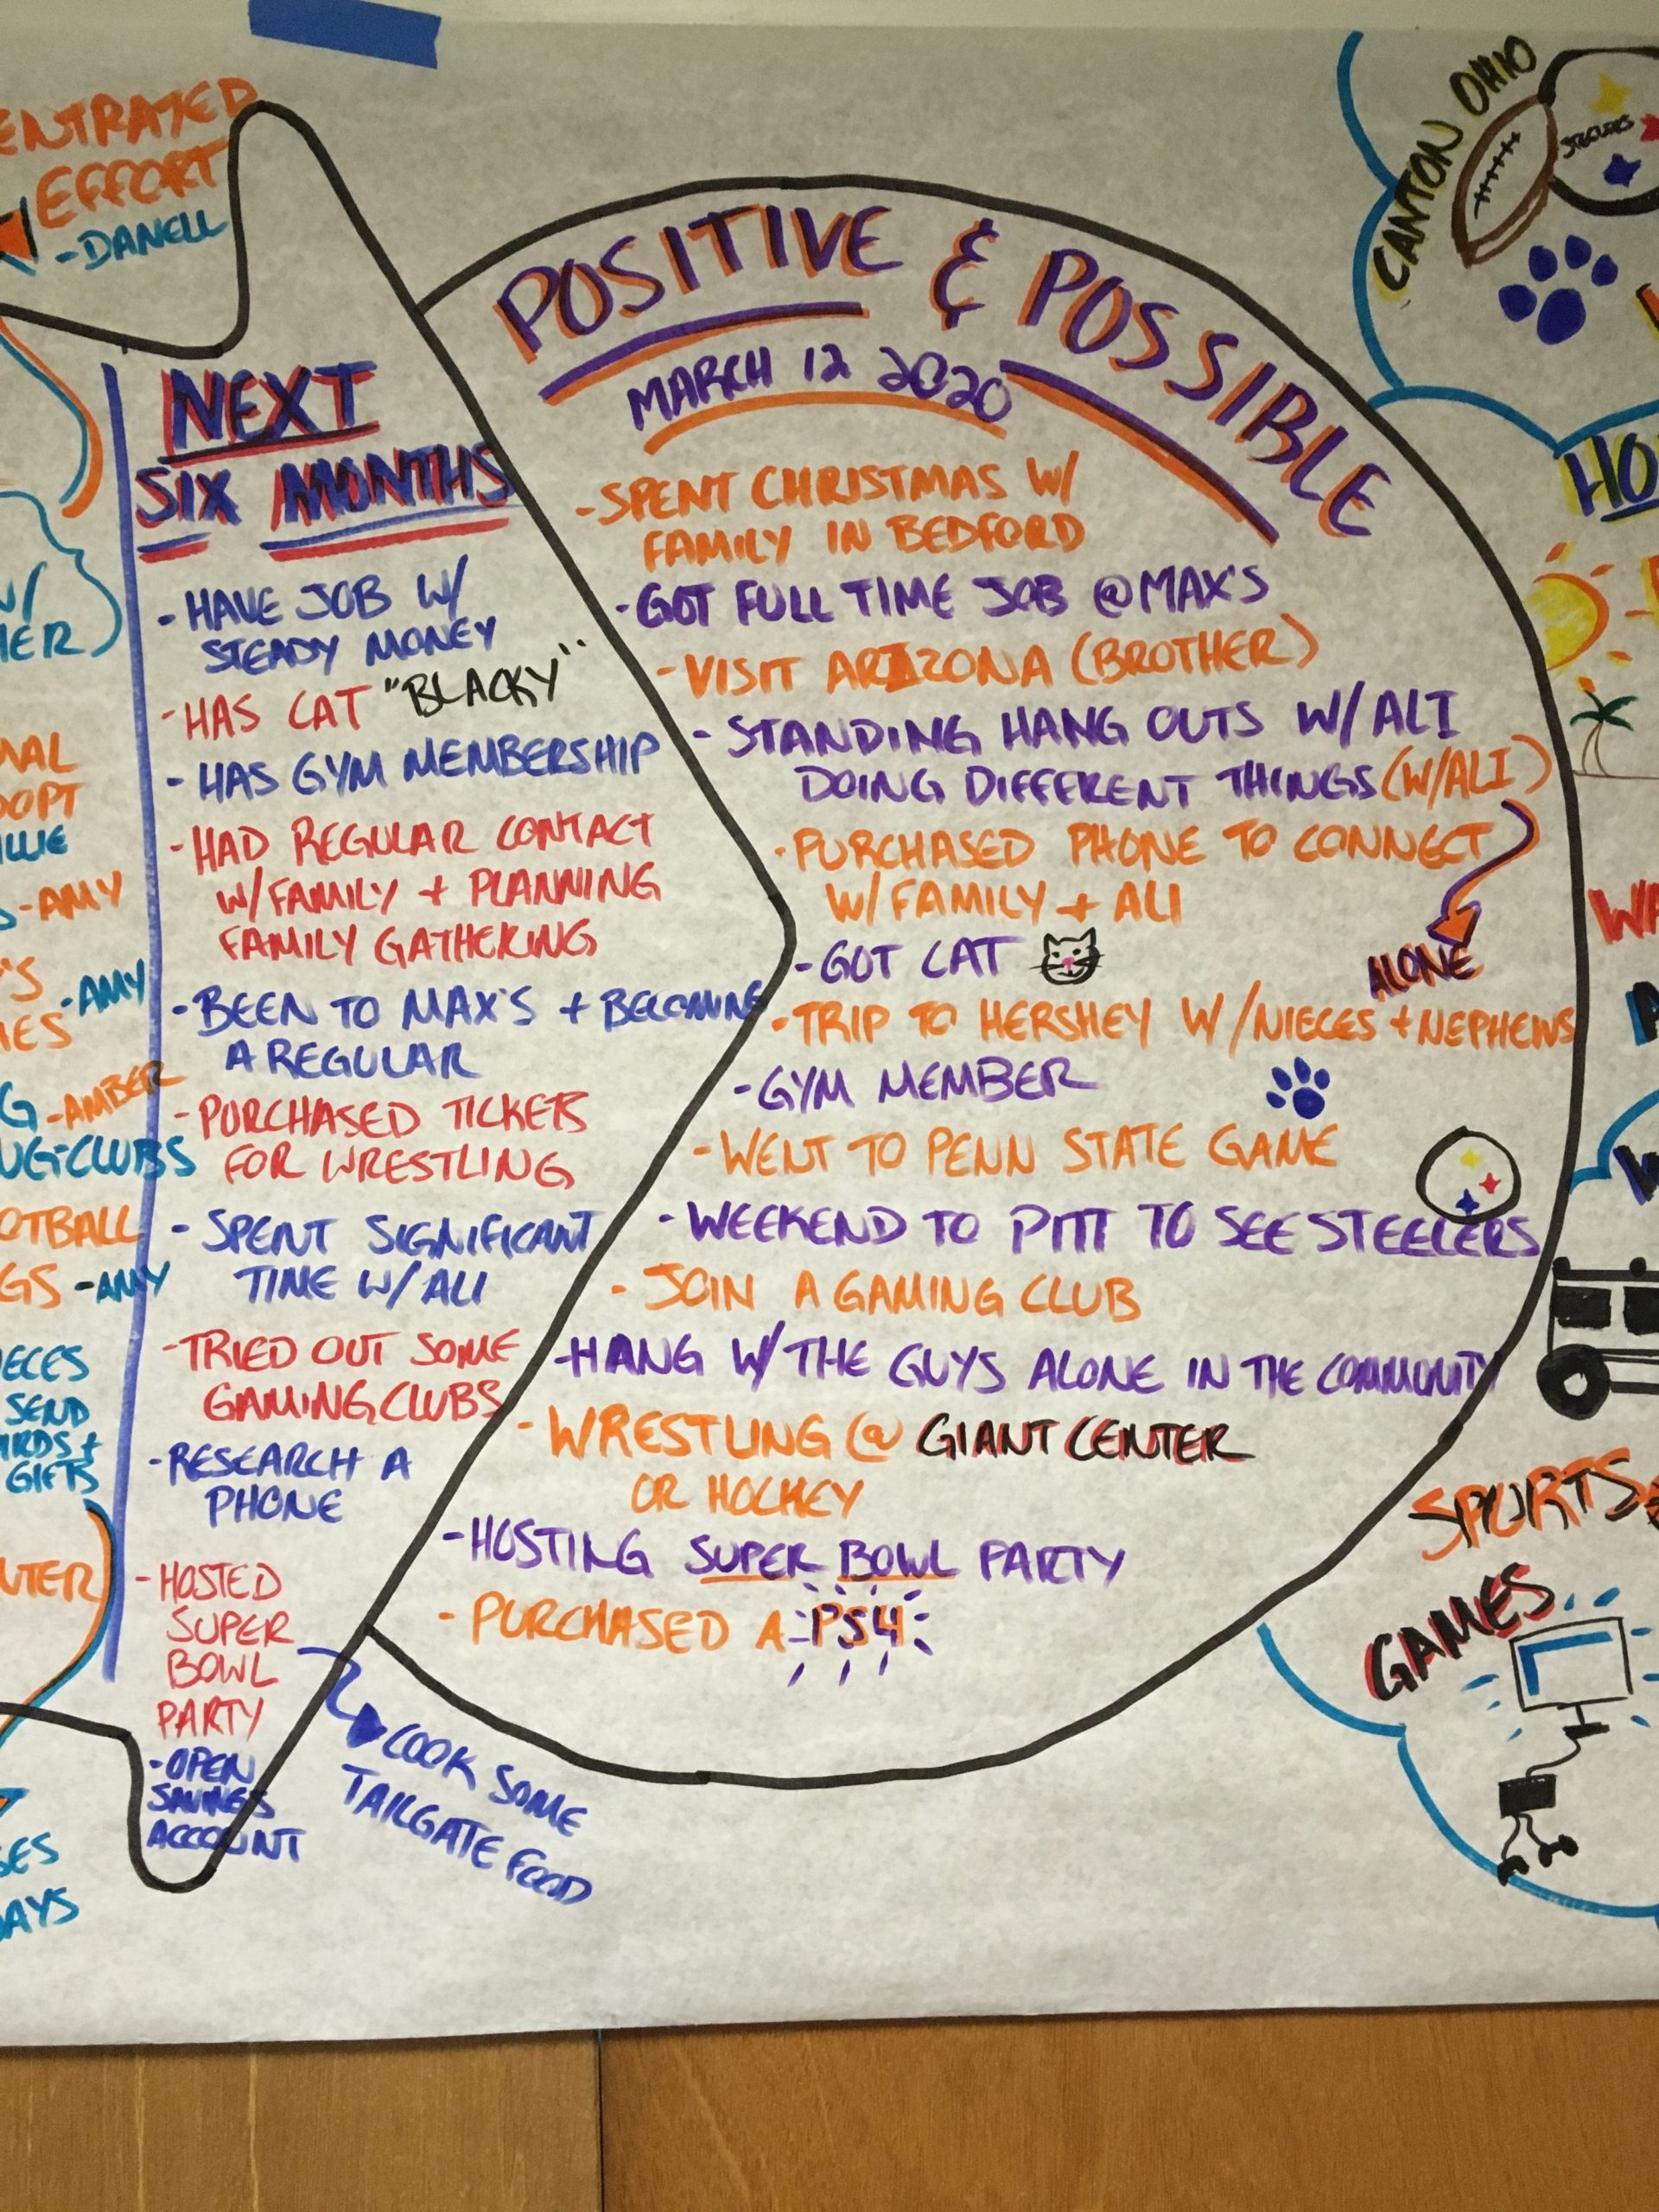 EFFORT
-DANELL
NEXT
SIX MONTHS
- HAVE JOB W/
STEADY MONEY
- HAS CAT "BLACKY"
- HAS GYM MEMBERSHIP
- HAD REGULAR CONTACT
W/FAMILY + PLANNING
FAMILY GATHERING
- BEEN TO MAX'S + BECOMING
A REGULAR
- PURCHASED TICKETS
FOR WRESTLING
- SPENT SIGNIFICANT
TIME W/ ALI
- TRIED OUT SOME
GAMING CLUBS
- RESEARCH A
PHONE
- HOSTED
SUPER
BOWL
PARTY
- OPEN
SAVINGS
ACCOUNT
COOK SOME
TAILGATE FOOD
POSITIVE & POSSIBLE
MARCH 12 2020
- SPENT CHRISTMAS W/
FAMILY IN BEDFORD
- GOT FULL TIME JOB @MAX'S
- VISIT ARIZONA (BROTHER)
- STANDING HANG OUTS W/ALI
DOING DIFFERENT THINGS (W/ALI)
ALONE
- PURCHASED PHONE TO CONNECT
W/ FAMILY + ALI
- GOT CAT
- TRIP TO HERSHEY W/NIECES + NEPHEWS
- GYM MEMBER
- WENT TO PENN STATE GAME
- WEEKEND TO PITT TO SEE STEELERS
- JOIN A GAMING CLUB
- HANG W/ THE GUYS ALONE IN THE COMMUNITY
- WRESTLING @ GIANT CENTER
OR HOCKEY
- HOSTING SUPER BOWL PARTY
- PURCHASED A PS4
-AMY
-AMY
-AMBER
-CLUBS
-AMY
SEND
GIFTS
CANTON OHIO
STEELERS
SPORTS
GAMES